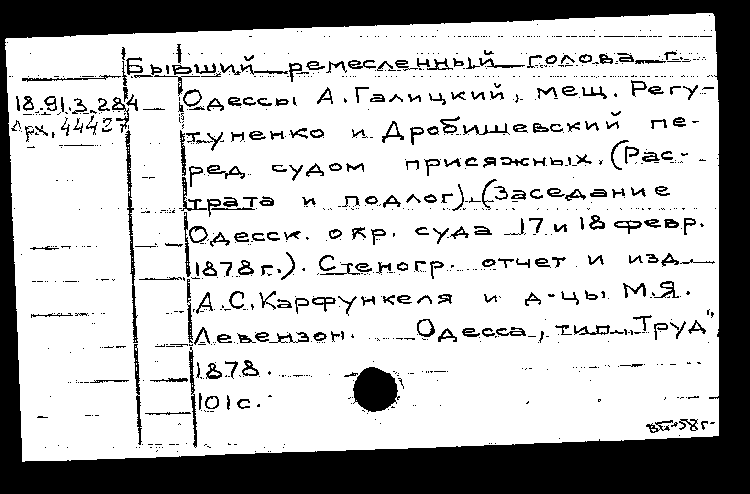 Бывший ремесленный голова г.
18.91.3.284 Одессы А. Галицкий, мещ. Регу-
Арх. 44427 туненко и Дробишевский пе-
ред судом присяжных. (Рас-
трата и подлог). (Заседание
Одесск. окр. суда 17 и 18 февр.
1878 г.). Стеногр. отчет и изд.
А.С. Карфункеля и д-цы М.Я.
Левензон. Одесса, тип. „Труд",
1878.
101 с.
58 г.